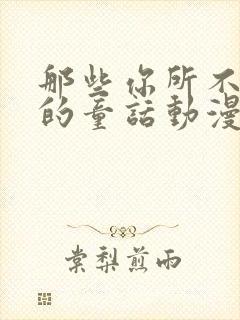 那些你所不
的童話動漫
棠梨煎雨